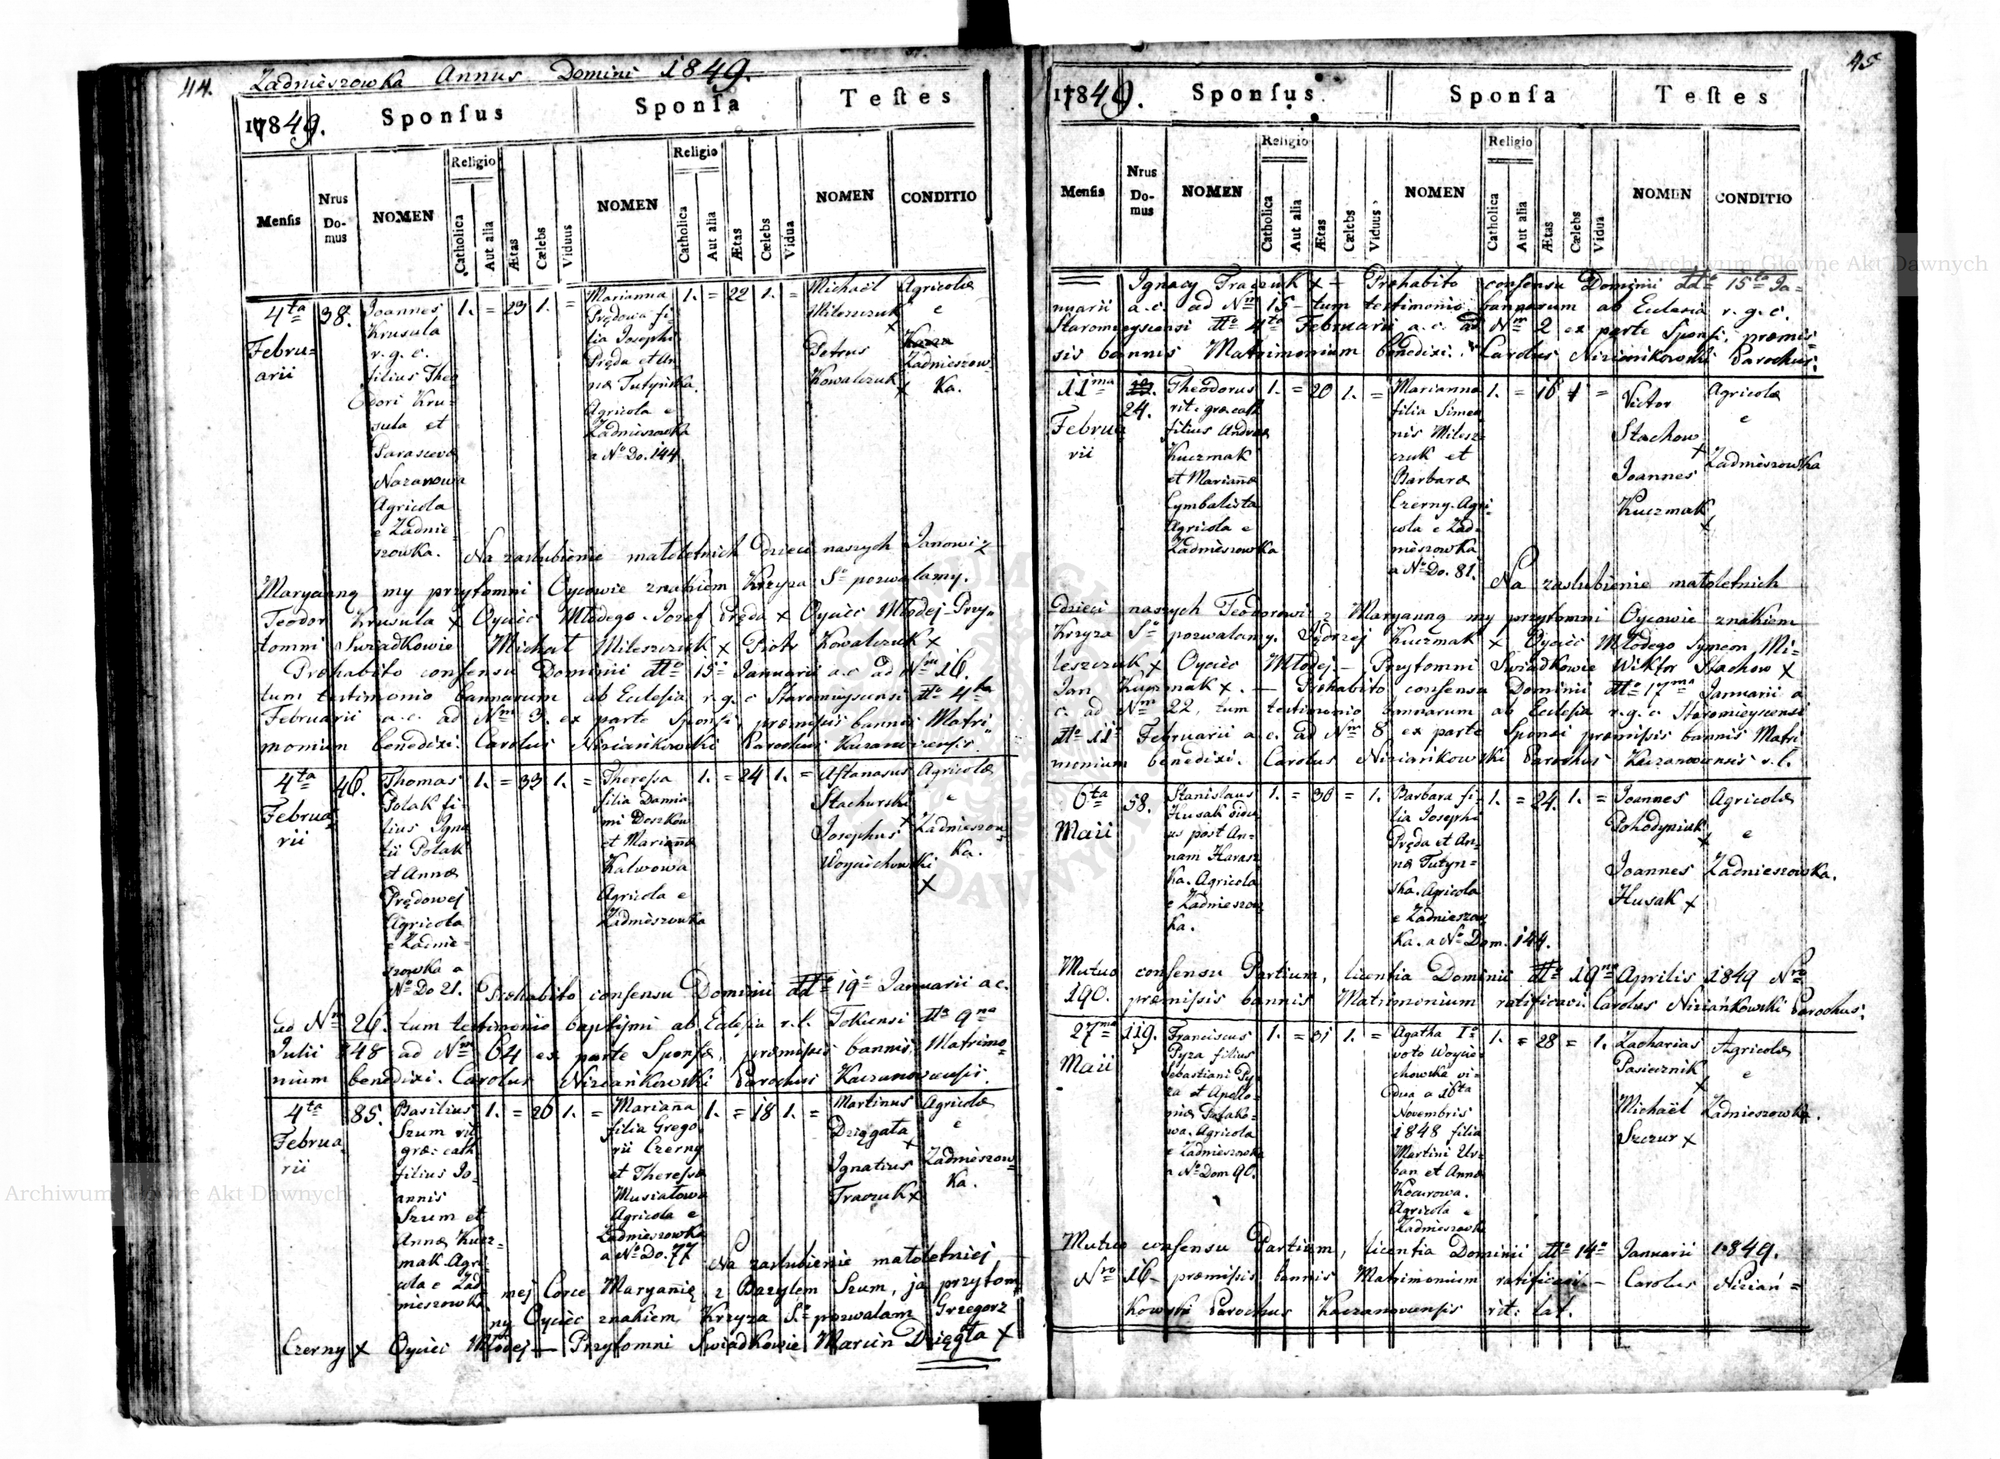 44.
Zadnieszowka Annus Domini 1849.
1849.
Sponſus
Sponſa
Teſtes
Menſis
Nrus Do-mus
NOMEN
Religio
Catholica
Aut alia
Ætas
Cælebs
Viduus
NOMEN
Religio
Catholica
Aut alia
Ætas
Cælebs
Vidua
NOMEN
CONDITIO
4ta
Febru-
arii
38.
Joannes
Krusula
r. g. c.
filius Theo
dori Kru-
sula et
Parascevæ
Nazarowa
Agricola
e Zadnie-
szowka.
1. = 23 1. =
Marianna
Prędowa fi
lia Josephi
Pręda et An
næ Tutyńska
Agricola e
Zadnieszowka
a No Do. 144
1. = 22 1. =
Michaël
Mileszczuk
x
Petrus
Kowalczuk
x
Agricolæ
e
Zadnieszow-
ka.
Na zaslubienie małoletnich Dzieci naszych Janowi z
Maryanną my przytomni Oycowie znakiem Krzyza So pozwalamy.
Teodor Krusula x Oyciec Młodego. Jozef Pręda x Oyciec Młodej - Przy-
tomni Swiadkowie Michał Mileszczuk x Piotr Kowalczuk x
Præhabito consensu Dominii dto 15o Januarii a.c. ad Nrm 16.
tum testimonio bannorum ab Eclesia r. g. c Staromieyscensi dto 4ta
Februarii a.c. ad Nrm 3. ex parte Sponsi, præmissis bannis Matri
monium benedixi. Carolus Niziańkowski Parochus Kaczanovensis.
4ta
Februa-
rii
46.
Thomas
Polak fi-
lius Igna
tii Polak
et Annæ
Prędowej
Agricola
e Zadnie-
szowka a
No Do 21.
1. = 33 1. =
Theressa
filia Damia
ni Doszkow
et Mariannæ
Kalwowa
Agricola e
Zadnieszowka
1. = 24 1. =
Aftanasus
Stachurski
x
Josephus
Woyciechowski
x
Agricolæ
e
Zadnieszow-
ka.
Præhabito consensu Dominii ddto 19o Januarii a.c.
ad Nrm 26. tum testimonio baptismi ab Eclesia r. l. Tokiensi dto 9na
Julii 848 ad Nrm 64 ex parte Sponsæ, præmissis bannis, Matrimo-
nium benedixi. Carolus Niziańkowski Parochus Kaczanovensis.
4ta
Februa-
rii
85.
Basilius
Szum rit
græc: cath
filius Jo-
annis
Szum et
Annæ Kucz-
mak Agri-
cola e Zad
nieszowka
1. = 26 1. =
Marianna
filia Grego
rii Czerny
et Theressæ
Musiałowa
Agricola e
Zadnieszowka
a No Do. 77
1. = 18 1. =
Martinus
Dzięgała
x
Ignatius
Traczuk x
Agricolæ
e
Zadnieszow-
ka.
Na zaslubienie małoletniej
mej Corce Maryannie z Bazylem Szum, ja przytom-
ny Oyciec znakiem Krzyza So pozwalam Grzegorz
Czerny x Oyciec Młodej — Przytomni Swiadkowie Marcin Dzięgła x
45
1849.
Sponſus
Sponſa
Teſtes
Menſis
Nrus Do-mus
NOMEN
Religio
Catholica
Aut alia
Ætas
Cælebs
Viduus
NOMEN
Religio
Catholica
Aut alia
Ætas
Cælebs
Vidua
NOMEN
CONDITIO
Ignacy Traczuk x — Præhabito consensu Dominii ddto 15ta Ja-
nuarii a.c. ad Nrm 15 - tum testimonio bannorum ab Eclesia r. g. c.
Staromieyscensi dto 4ta Februarii a. c. ad Nrm 2 ex parte Sponsi, præmis-
sis bannis Matrimonium benedixi. Carolus Niziańkowski Parochus.
11ma
Februa
rii
24.
Theodorus
rit: græ.cath
filius Andreæ
Kuczmak
et Mariannæ
Cymbalista
Agricola e
Zadnieszowka
1. = 20 1. =
Marianna
filia Simeo
nis Milesz-
czuk et
Barbaræ
Czerny. Agri-
cola e Zad-
nieszowka
a No Do. 81.
1. = 16 1 =
Victor
Stachow
x
Joannes
Kuczmak
x
Agricolæ
e
Zadnieszowka
Na zaslubienie małoletnich
dzieci naszych Teodorowi z Maryanną my przytomni Oycowie znakiem
Krzyza So pozwalamy. Jędrzej Kuczmak x Oyciec Młodego Symeon Mi-
leszczuk x Oyciec Młodej. — Przytomni Swiadkowie Wiktor Stachow x
Jan Kuczmak x. — Præhabito consensu Dominii dto 17ma Januarii a
c. ad Nrm 22, tum testimonio bannorum ab Eclesia r. g. c. Staromieyscensi
dto 11a Februarii a. c. ad Nrm 8 ex parte Sponsi præmissis bannis Matri
monium benedixi. Carolus Niziańkowski Parochus Kaczanovensis r. l.
6ta
Maii
58.
Stanislaus
Husak vidu
us post An-
nam Haras
ka. Agricola
e Zadnieszow
ka.
1. = 30 = 1.
Barbara fi-
lia Josephi
Pręda et An-
næ Tutyn-
ska. Agricola
e Zadnieszow
ka. a No Dom. 144.
1. = 24. 1. =
Joannes
Pohodyniuk
x
Joannes
Husak x
Agricolæ
e
Zadnieszowka.
Mutuo consensu Partium, licentia Dominii dto 19na Aprilis 1849 Nro
190. præmissis bannis Matrimonium ratificavi. Carolus Niziańkowski Parochus.
27ma
Maii
119.
Franciscus
Pyza filius
Sebastiani Py-
za et Apolo-
niæ Polako-
wa. Agricola
e Zadnieszowka
a No Dom 90.
1. = 31 1. =
Agatha Io
voto Woycie
chowska vi-
dua a 16ta
Novembris
1848 filia
Martini Ur-
ban et Annæ
Kocurowa.
Agricola e
Zadnieszowka
1. = 28 = 1.
Zacharias
Pasiecznik
x
Michaël
Szczur x
Agricolæ
e
Zadnieszowka.
Mutuo consensu Partium, licentia Dominii dto 14o Januarii 1849.
Nro 16 — præmissis bannis Matrimonium ratificavi — Carolus Niziań-
kowski Parochus Kaczanovensis rit: lat.
Archiwum Główne Akt Dawnych
Archiwum Główne Akt Dawnych